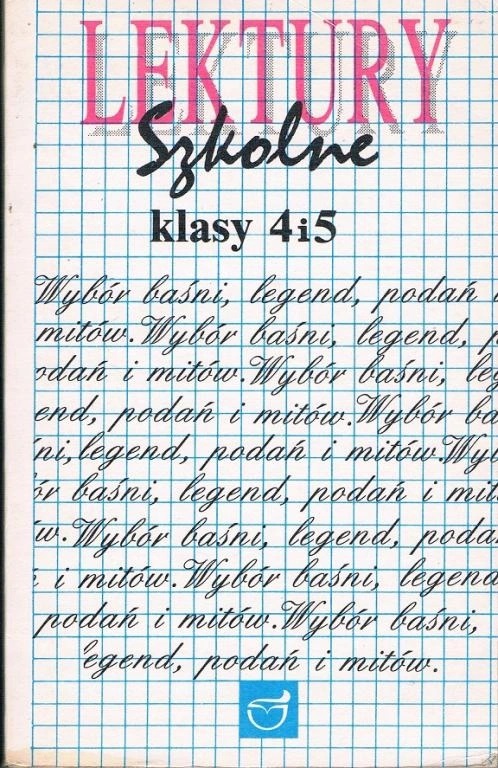 LEKTURY
Szkolne
klasy 4i5
Wybór baśni, legend, podań i
mitów. Wybór baśni, legend, p
odań i mitów. Wybór baśni, leg
end, podań i mitów. Wybór ba
ni, legend, podań i mitów. Wyb
ór baśni, legend, podań i mit
ów. Wybór baśni, legend, poda
i mitów. Wybór baśni, legend
podań i mitów. Wybór baśni,
legend, podań i mitów.